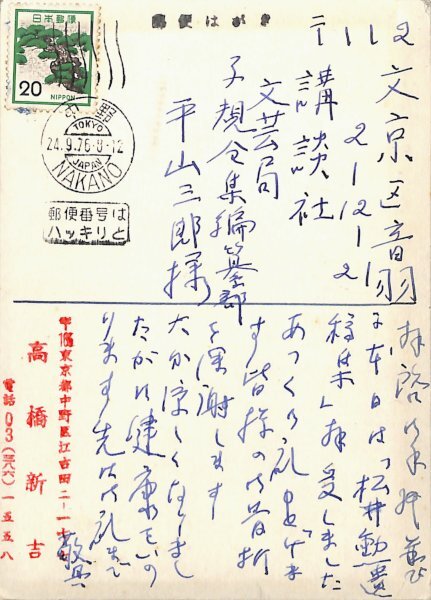 郵便はがき
日本郵便
20
NIPPON
中野
TOKYO
24.9.76.8-12
JAPAN
NAKANO
郵便番号は
ハッキリと
〒112
文京区音羽
2-12-2
講談社
文芸局
子規全集編纂部
平山三郎様
拝啓
本日は「松井勲遺
稿集」拝受しました
あつく御礼申上げま
す皆様の御骨折
を深謝します
大分涼しくなりまし
たが御健康をいの
ります先は御礼まで
敬具
東京都中野区江古田二-一
高橋新吉
電話03(三八六)一五五八